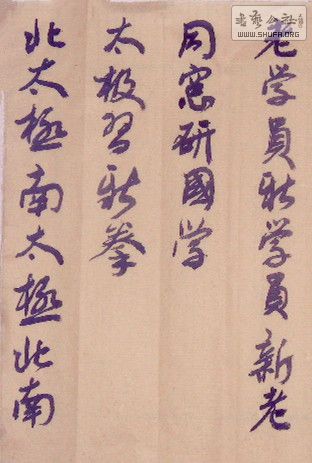 老学員新学員新老
同窓研國学
北太極南太極北南
太极習新拳
書藝公社
WWW.SHUFA.ORG